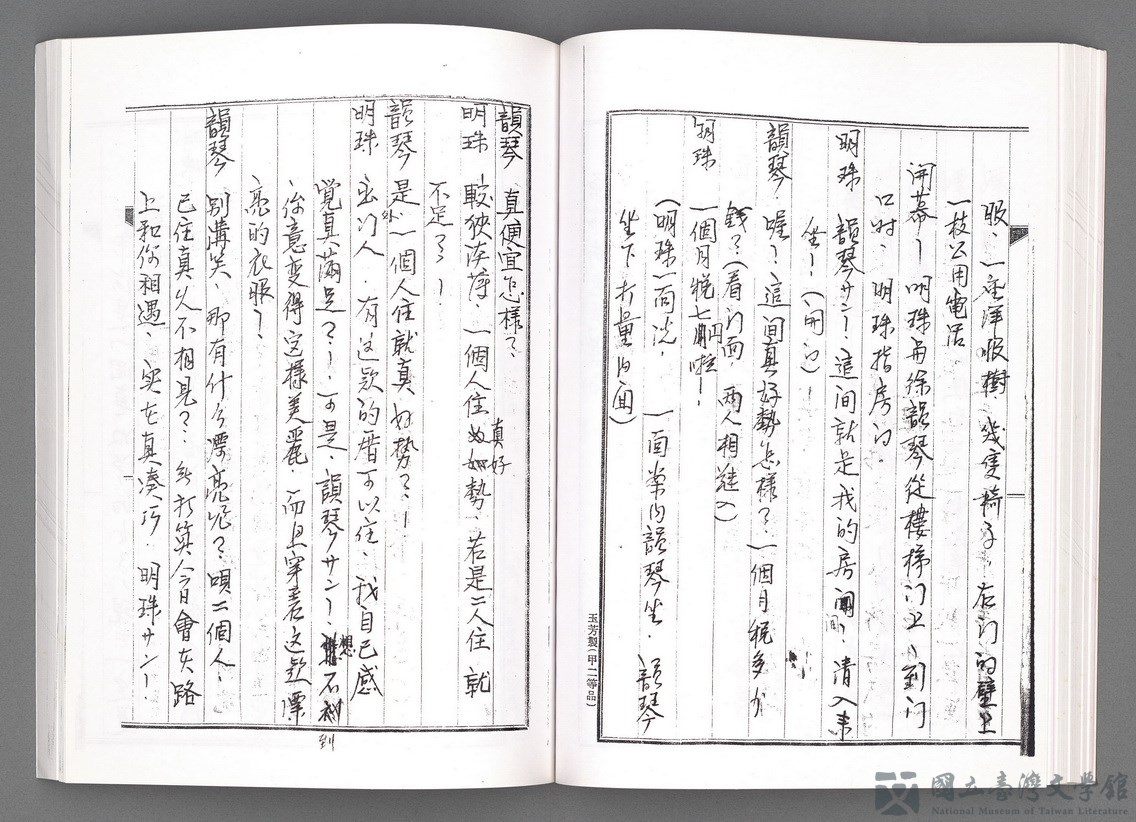 服、一座洋服樹、幾隻椅子。右门的壁上
一枝公用電话
開幕－明珠與徐韻琴從樓梯门上、到门
口时、明珠指房门。
明珠 韻琴サン！這间就是我的房间！请入来
坐！（開门）！
韻琴 喔？這间真好勢怎樣？一個月税多少
錢？（看门面，兩人相  入）
明珠 一個月税七円啦！
（明珠一面说， 一面案内韻琴坐. 韻琴
坐下打量内面）
玉芳製（甲二等品）
韻琴 真便宜怎樣？
明珠 較狹 薄，一個人住真好勢、若是二人住 就
不足了！
韻琴 是、一個人住就真好勢？！
明珠 出门人．有这款的厝可以住、我自己感
覚真滿足？！．可是、韻琴サン！想不到
你意变得這樣美麗 而且穿着这款漂
亮的衣服？
韻琴 别講笑、那有什么漂亮呢？ 唄二個人、
已住真久不相見？ 無打算今日會在路
上和你相遇、实在真凑巧．明珠サン！
國立臺灣文學館
National Museum of Taiwan Literature